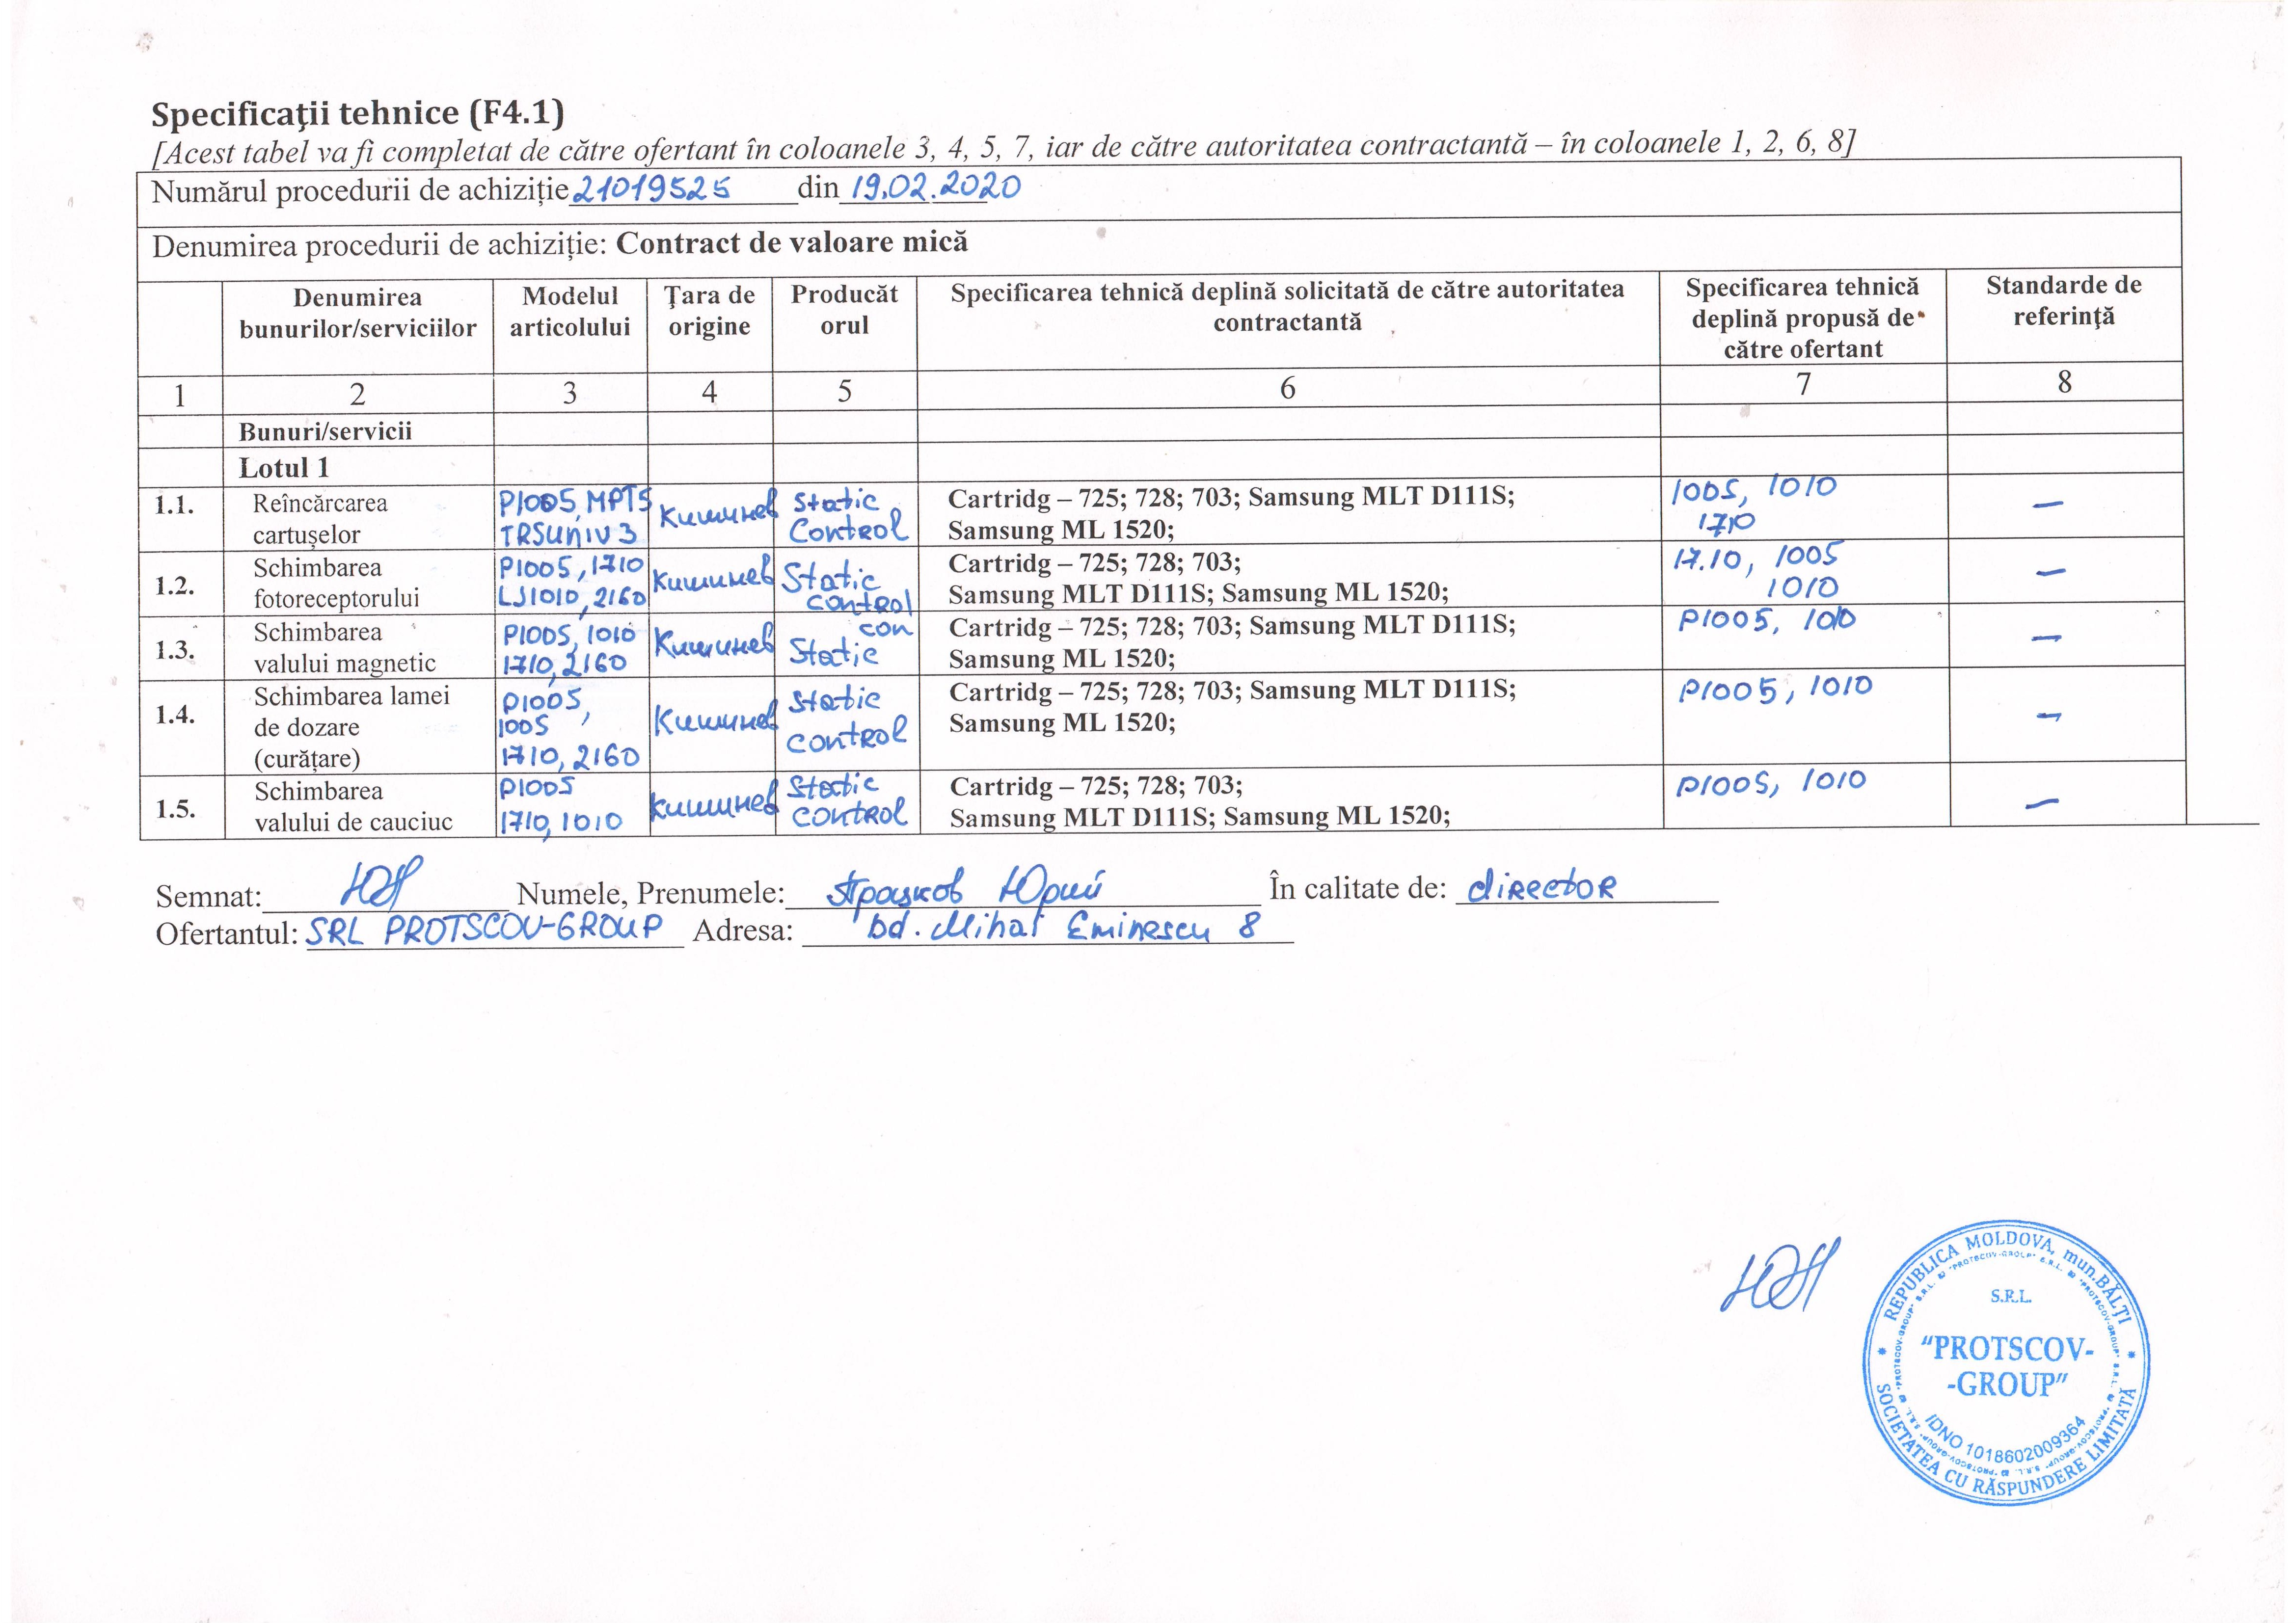 Specificaţii tehnice (F4.1)
[Acest tabel va fi completat de către ofertant în coloanele 3, 4, 5, 7, iar de către autoritatea contractantă – în coloanele 1, 2, 6, 8]
Numărul procedurii de achiziție 21019525 din 19.02.2020
Denumirea procedurii de achiziție: Contract de valoare mică
Denumirea bunurilor/serviciilor
Modelul articolului
Ţara de origine
Producăt orul
Specificarea tehnică deplină solicitată de către autoritatea contractantă
Specificarea tehnică deplină propusă de către ofertant
Standarde de referinţă
1 2 3 4 5 6 7 8
Bunuri/servicii
Lotul 1
1.1. Reîncărcarea cartușelor
P1005, MPT5
TRSUNIV3
Кишинев
Static
Control
Cartridg – 725; 728; 703; Samsung MLT D111S;
Samsung ML 1520;
1005, 1010
1710
—
1.2. Schimbarea fotoreceptorului
P1005, 1710
LJ1010, 2160
Кишинев
Static
control
Cartridg – 725; 728; 703;
Samsung MLT D111S; Samsung ML 1520;
17.10, 1005
1010
—
1.3. Schimbarea valului magnetic
P1005, 1010
1710, 2160
Кишинев
con
Static
Cartridg – 725; 728; 703; Samsung MLT D111S;
Samsung ML 1520;
P1005, 1010
—
1.4. Schimbarea lamei de dozare (curățare)
P1005,
1005,
1710, 2160
Кишинев
Static
control
Cartridg – 725; 728; 703; Samsung MLT D111S;
Samsung ML 1520;
P1005, 1010
—
1.5. Schimbarea valului de cauciuc
P1005
1710, 1010
Кишинев
Static
control
Cartridg – 725; 728; 703;
Samsung MLT D111S; Samsung ML 1520;
P1005, 1010
—
Semnat: Numele, Prenumele: Юрий În calitate de: director
Ofertantul: SRL PROTSCOV-GROUP Adresa: bd. Mihai Eminescu 8
REPUBLICA MOLDOVA, mun.BĂLŢI
S.R.L.
"PROTSCOV-
-GROUP"
IDNO 1018602009364
SOCIETATEA CU RĂSPUNDERE LIMITATĂ